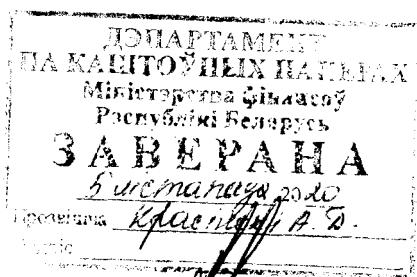 ДЭПАРТАМЕНТ
ПА КАШТОЎНЫХ ПАПЕРАХ
Міністэрства фінансаў
Рэспублікі Беларусь
ЗАВЕРАНА
5 лістапада 2020
Прозвішча А. Д.
Подпіс